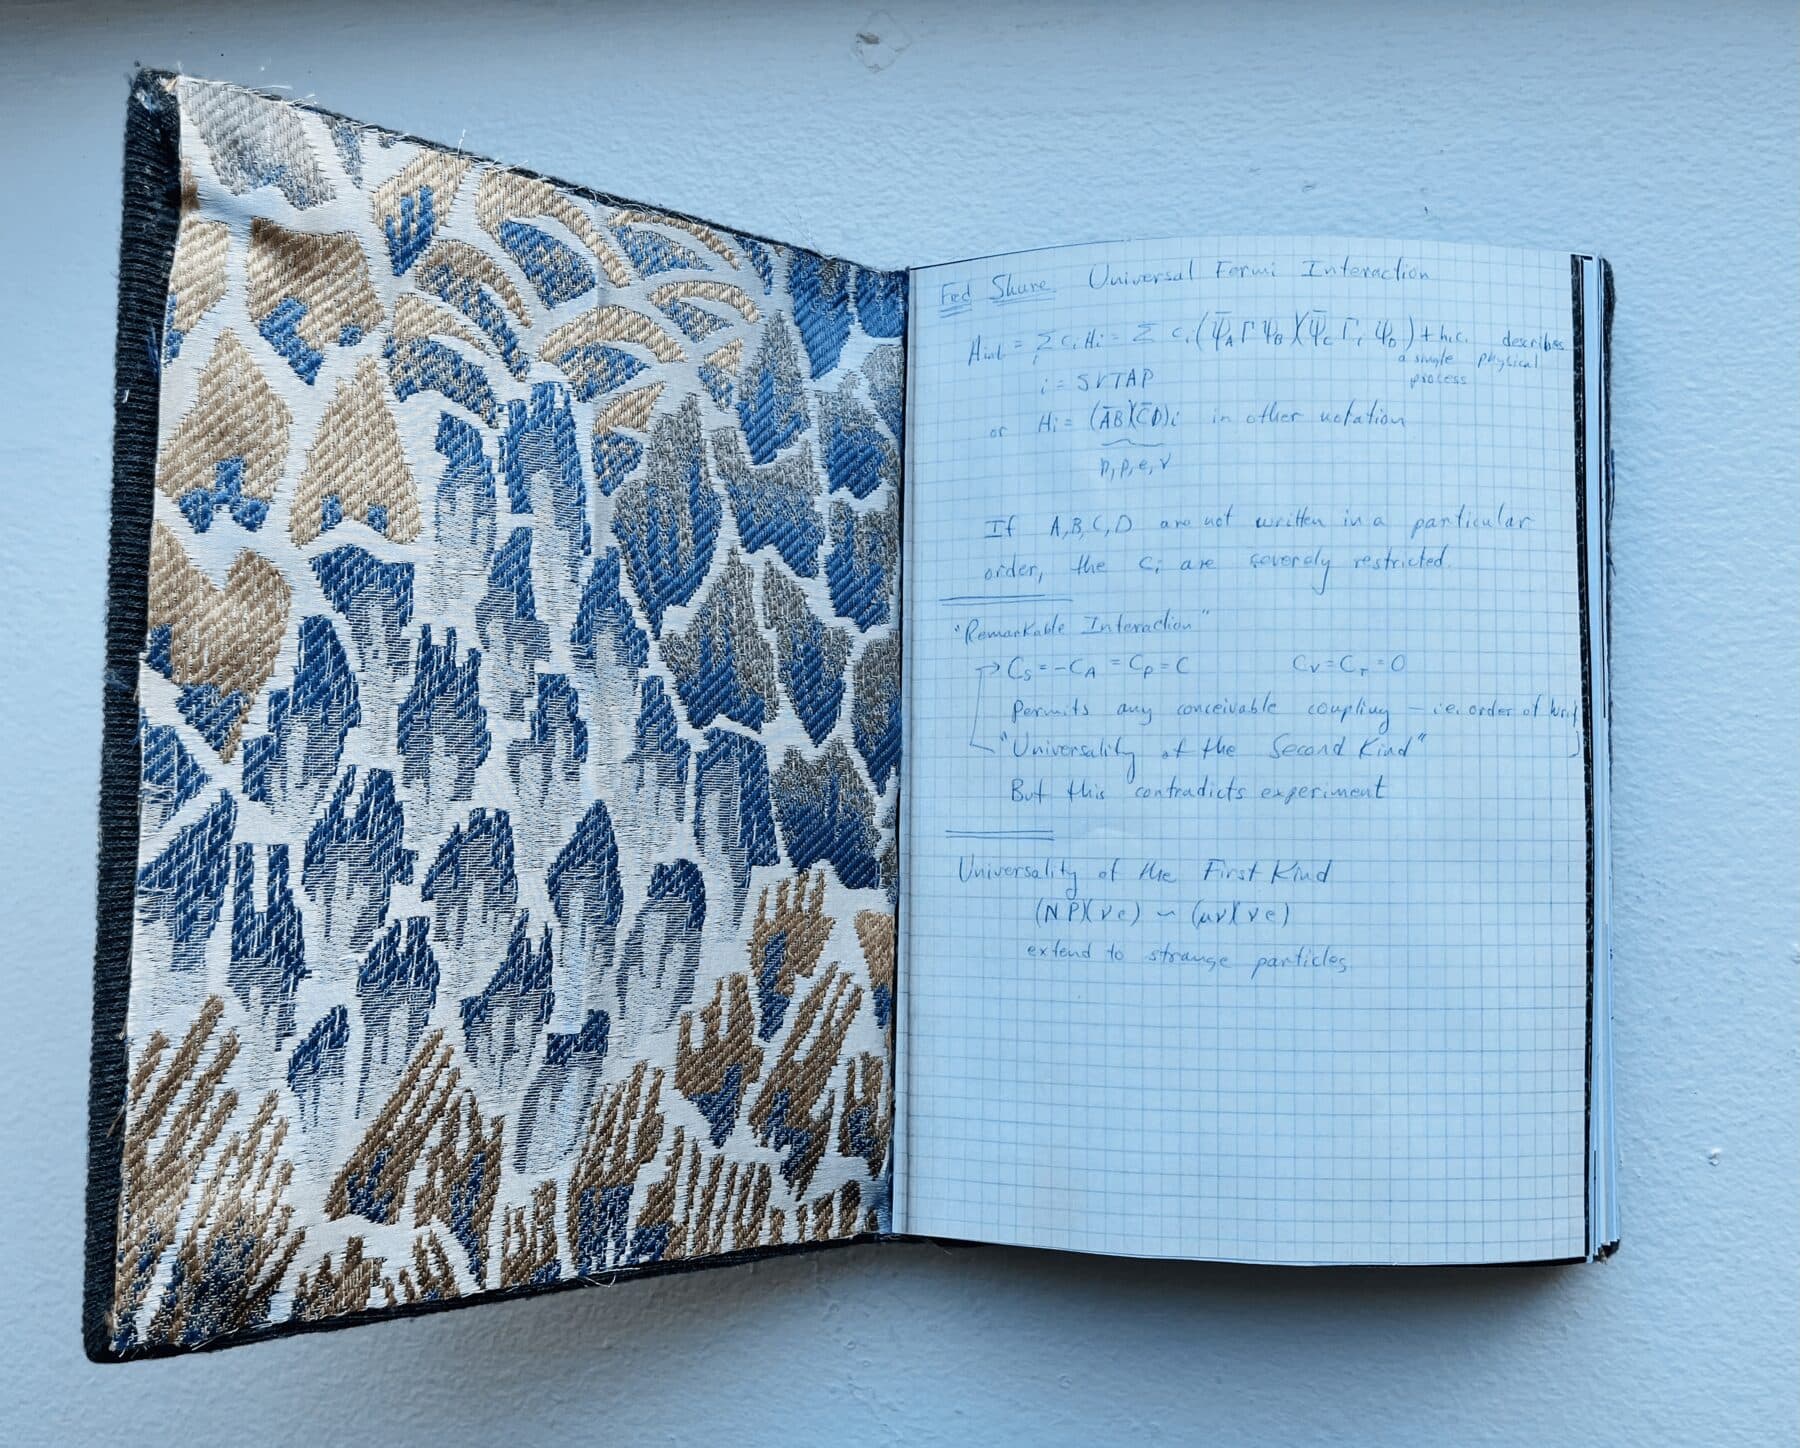 Fed Shure Universal Fermi Interaction
Hint = Σi ci Hi = Σ ci (ψ̄A Γ ψB)(ψ̄C Γi ψD) + h.c. describes
a single physical
process
i = SVTAP
or Hi = (ĀB)(C̄D)i in other notation
n, p, e, ν
If A, B, C, D are not written in a particular
order, the ci are severely restricted.
"Remarkable Interaction"
→ CS = -CA = CP = C CV = CT = 0
Permits any conceivable coupling – i.e. order of
"Universality of the Second Kind"
But this contradicts experiment
Universality of the First Kind
(N P)(ν e) ~ (μν)(ν e)
extend to strange particles